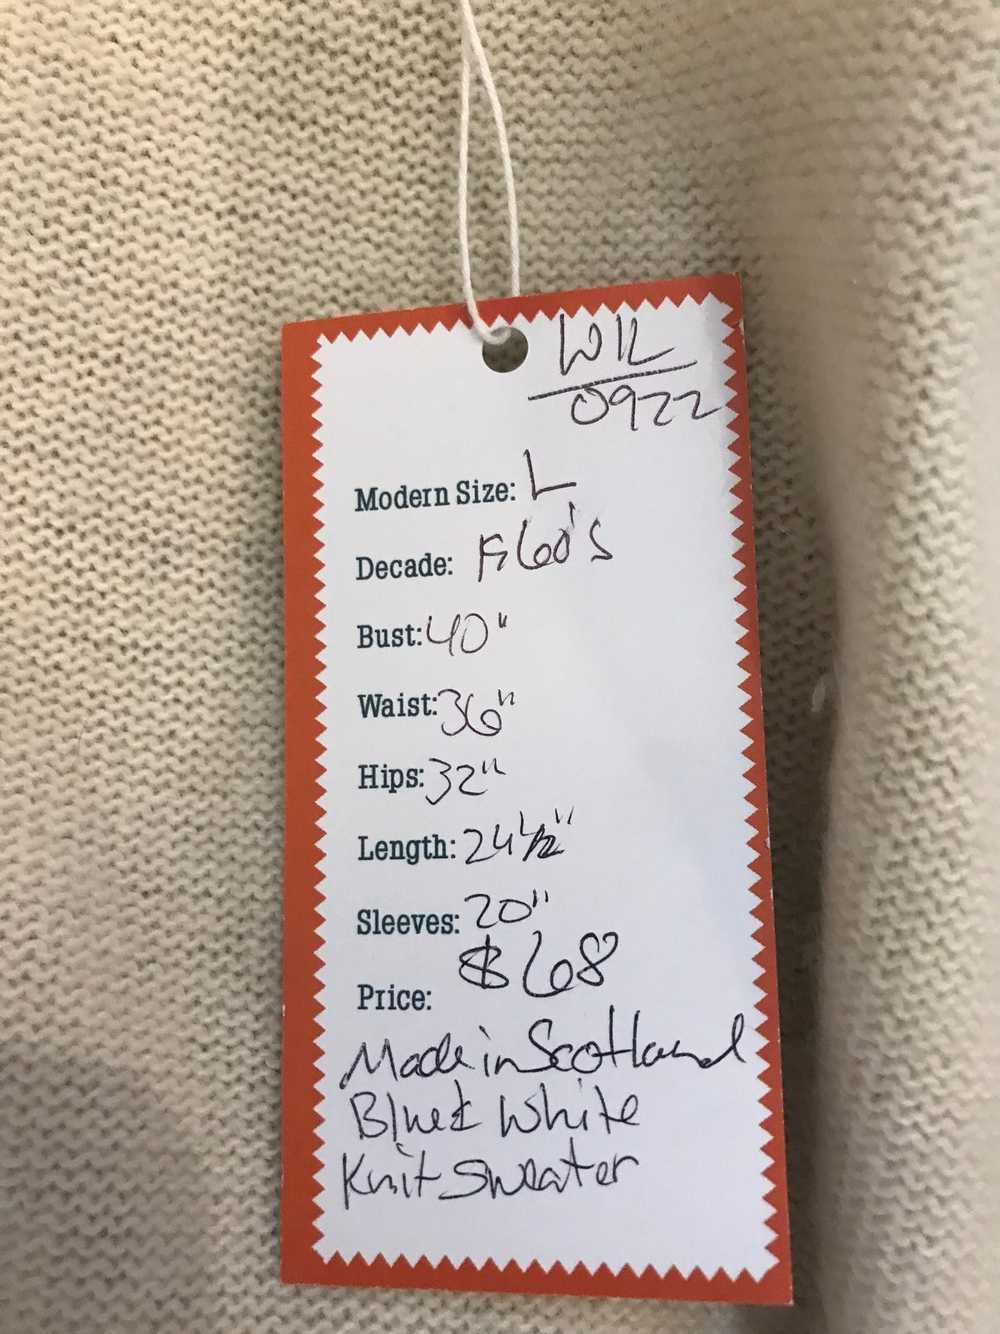 0922
Modern Size: L
Decade: 60's
Bust: 40"
Waist: 36"
Hips: 32"
Length: 24 1/2"
Sleeves: 20"
Price: $68
Made in Scotland
Blue & White
Knit Sweater